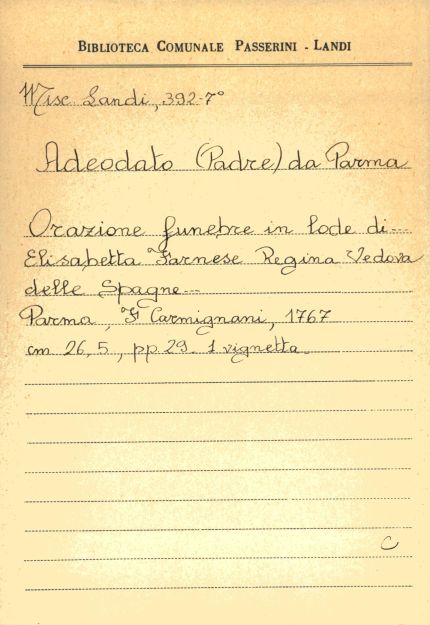 BIBLIOTECA COMUNALE PASSERINI - LANDI
Misc. Landi, 392-7°
Adeodato (Padre) da Parma
Orazione funebre in lode di---
Elisabetta Farnese Regina Vedova
delle Spagne---
Parma, F. Carmignani, 1767
cm. 26,5, pp. 29. 1 vignetta.
C